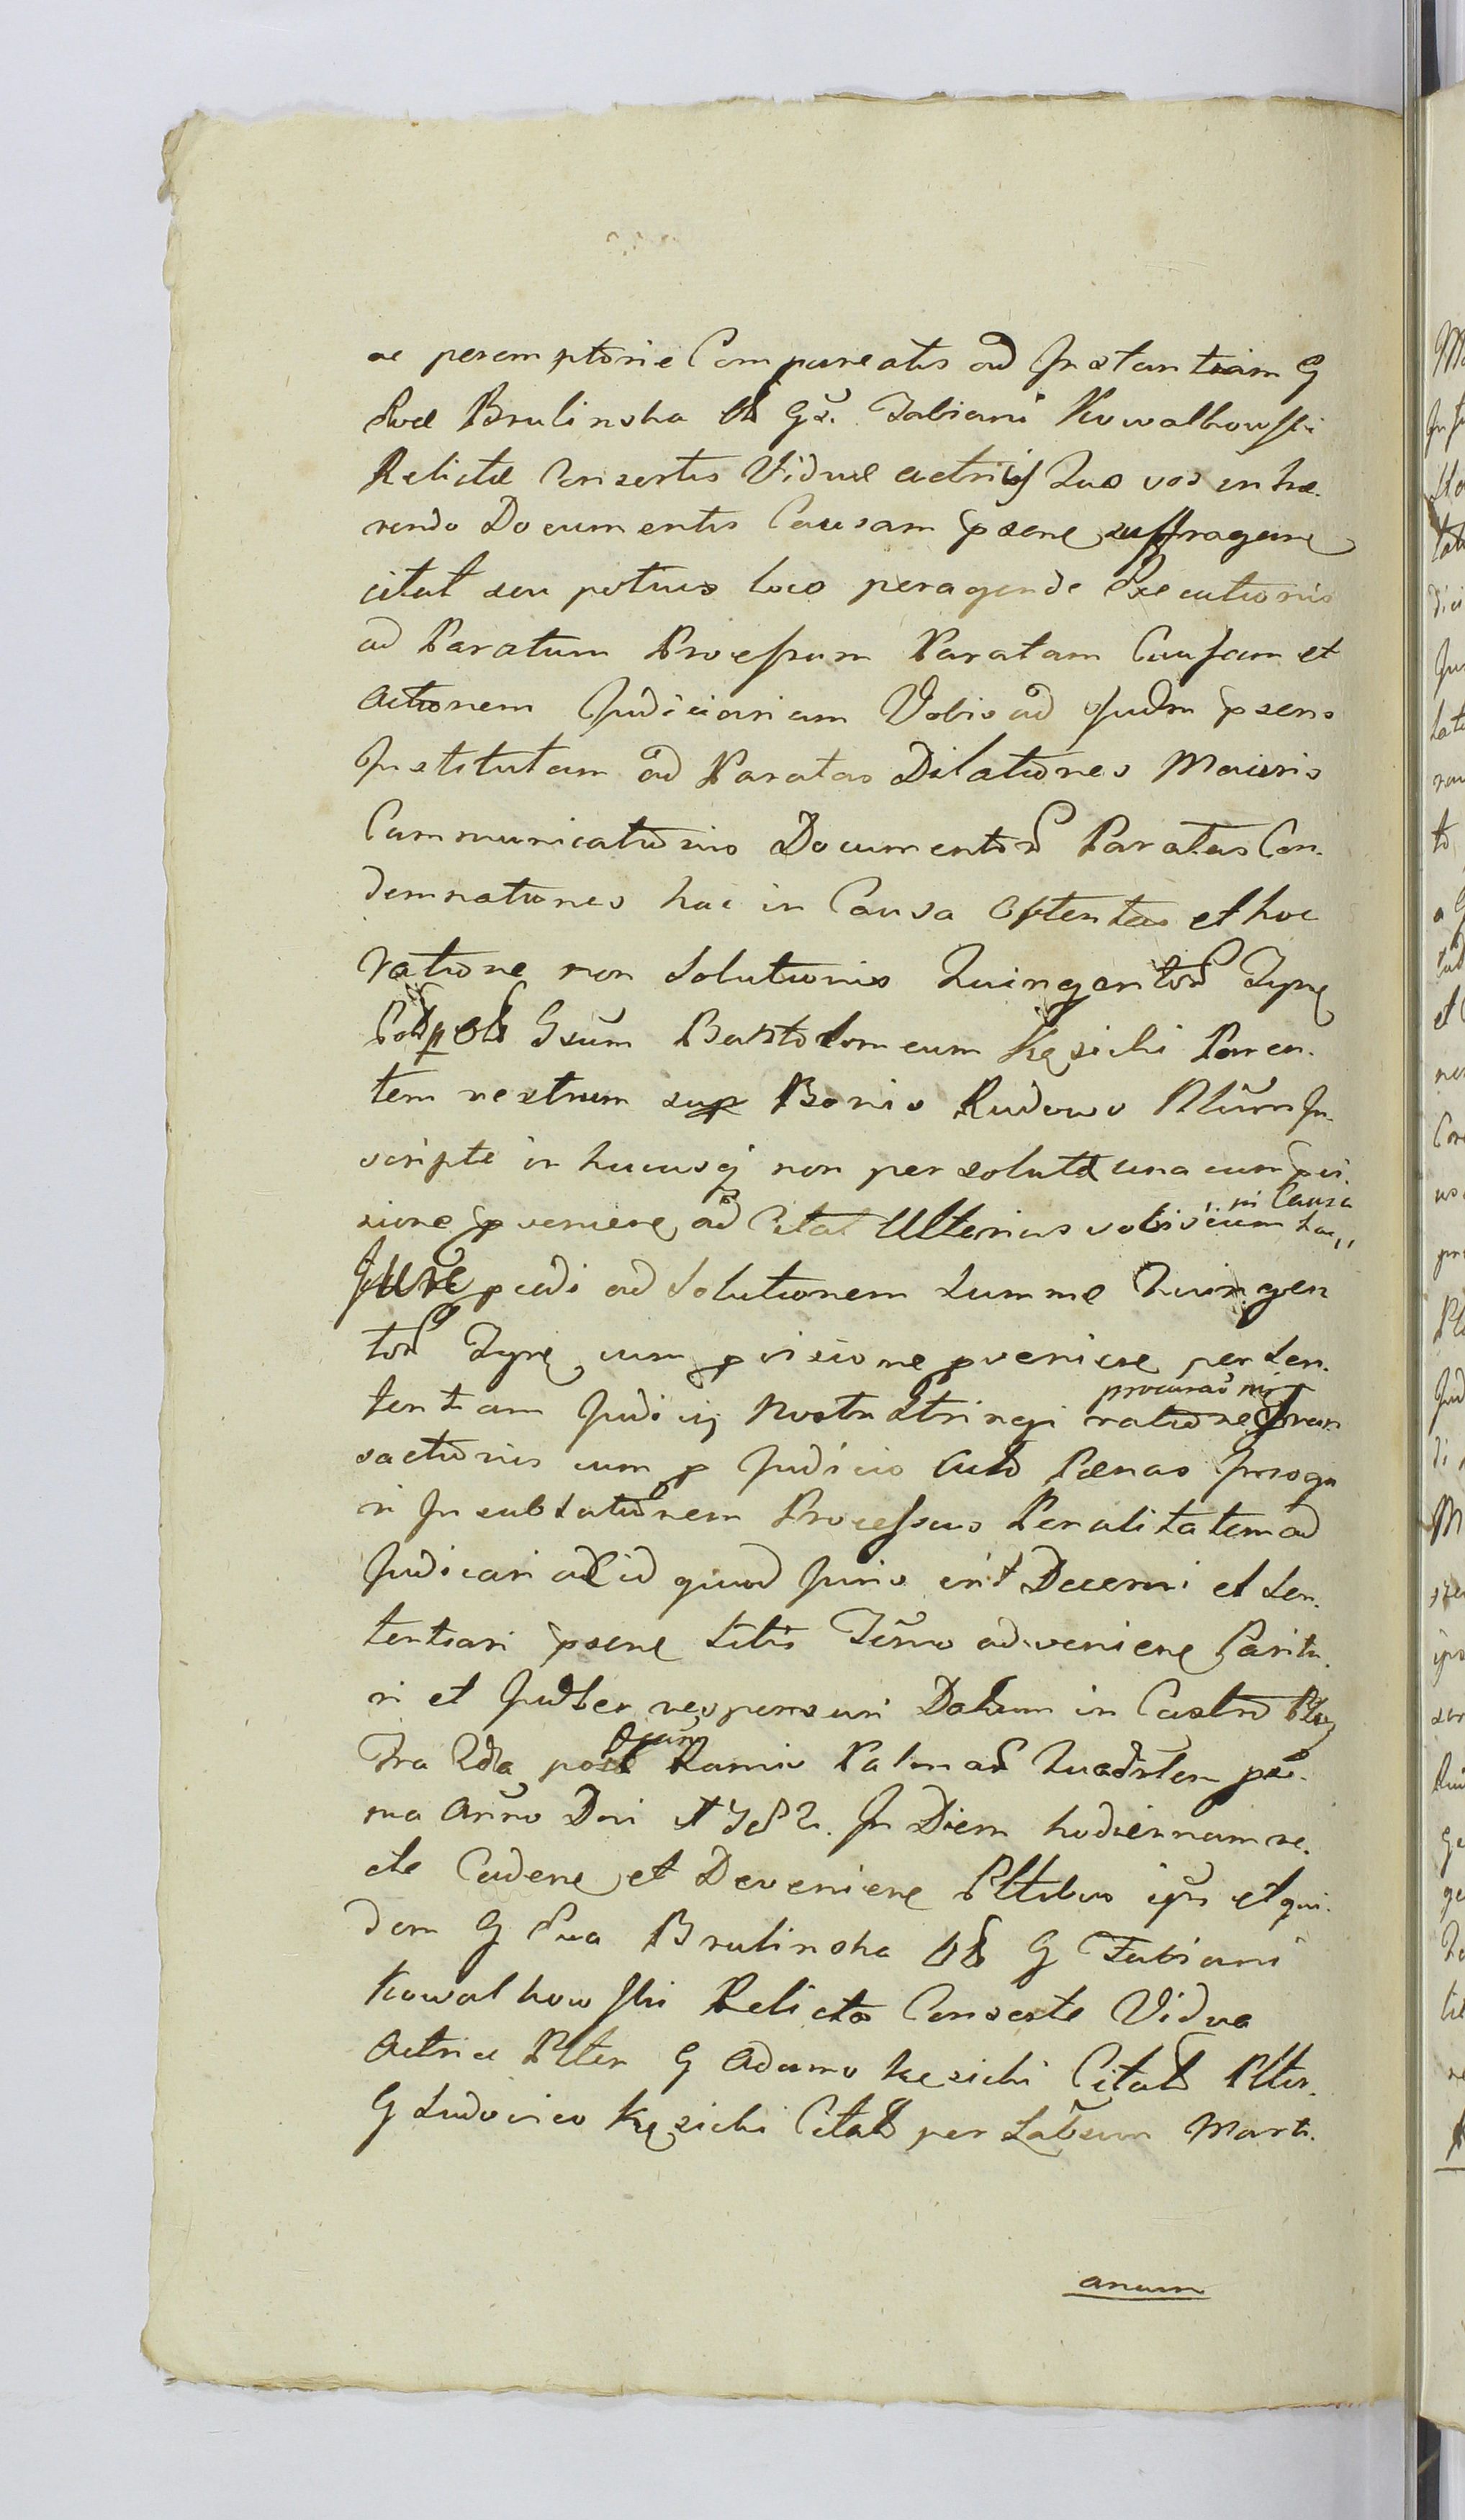 ac peremptorie Compareatis ad Instantiam G
Evæ Brulinska Gs. Fabiani Kowalkowski
Relictæ Consortis Viduæ actricis Quæ vos inhæ.
rendo Documentis Causam psene suffragane
citat seu potius loco peragende Executionis
ad Paratum Processum Paratam Causam et
actionem Judiciariam Vobis ad Judm psens
Institutam ad Paratas Dilationes Maioris
Communicationis Documentor Paratas Con.
demnationes hac in Causa optentas et hoc
Ratione non Solutionis Quingentor
Gsum Bartolomeum Kęsicki Paren.
tem vestrum sup Bonis Rudowo Pltum In
scripte in hucusq non persolute una cum pvi.
sione pveniene ad Citat Ulterius vobiscum hac
in Causa
Jure pcedi ad Solutionem Summe Quingen
tor cum pvisione pveniene per Sen.
tentiam Judicij Nostri Stringi ratione Tran
procuraonis
sactionis cum p Judicio Pænas Irroga
ri In sublationem Processus Penalitatem ad
Judicari ad id quod Juris erit Decerni et Sen.
tentiari psene Litis Termo adveniene Paritu.
ri et Judter responsuri Datum in Castro
Fra 2da post Ramis Palmar pri.
ma Anno Dni 1782. In Diem hodiernam re.
cte Cadene et Deveniene Pltibus ipis et qui.
dem G Eva Brulinska G Fabiani
Kowalkowski Relicta Consorte Vidua
Actrice Plter G Adamo Kęsicki Citato Plter.
G Ludovico Kęsicki Citato per Labsum Mart.
anum